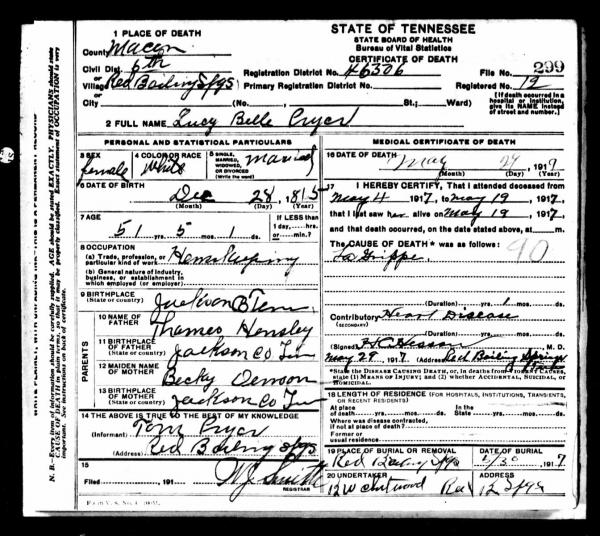 STATE OF TENNESSEE
STATE BOARD OF HEALTH
Bureau of Vital Statistics
CERTIFICATE OF DEATH
1 PLACE OF DEATH
County Macon
Civil Dist. 6th
Village Red Boiling Spgs
City
Registration District No. 46306
File No. 299
Primary Registration District No.
Registered No. 12
(No., St.; Ward)
(If death occurred in a hospital or institution, give its NAME instead of street and number.)
2 FULL NAME Lucy Belle Pryer
PERSONAL AND STATISTICAL PARTICULARS
3 SEX
female
4 COLOR OR RACE
White
5 SINGLE, MARRIED, WIDOWED, OR DIVORCED
(Write the word)
Married
6 DATE OF BIRTH
Dec 28
(Month) (Day) (Year)
7 AGE
51 yrs. 5 mos. 1 ds.
If LESS than
1 day, hrs.
or min.?
8 OCCUPATION
(a) Trade, profession, or particular kind of work
Housekeeping
(b) General nature of industry, business, or establishment in which employed (or employer)
9 BIRTHPLACE
(State or country)
Jackson
Tenn
10 NAME OF FATHER
Thomas Hensley
11 BIRTHPLACE OF FATHER
(State or country)
Jackson Co Tenn
12 MAIDEN NAME OF MOTHER
Becky
13 BIRTHPLACE OF MOTHER
(State or country)
Jackson Co Tenn
PARENTS
14 THE ABOVE IS TRUE TO THE BEST OF MY KNOWLEDGE
(Informant) Tom Pryer
(Address) Red Boiling Spgs
15
Filed, 191
W J Smith
REGISTRAR
MEDICAL CERTIFICATE OF DEATH
16 DATE OF DEATH
May 29, 1917
(Month) (Day) (Year)
17 I HEREBY CERTIFY, That I attended deceased from
May 4 1917, to May 19, 1917,
that I last saw her alive on May 19, 1917,
and that death occurred, on the date stated above, at m.
The CAUSE OF DEATH* was as follows:
90
La Grippe
(Duration) yrs. 1 mos. ds.
Contributory Heart Disease
(SECONDARY)
(Duration) yrs. mos. ds.
(Signed) M. D.
May 29, 1917 (Address) Red Boiling Springs
*State the DISEASE CAUSING DEATH, or, in deaths from VIOLENT CAUSES, state (1) MEANS OF INJURY; and (2) whether ACCIDENTAL, SUICIDAL, or HOMICIDAL.
18 LENGTH OF RESIDENCE (FOR HOSPITALS, INSTITUTIONS, TRANSIENTS, OR RECENT RESIDENTS)
At place of death yrs. mos. ds. In the State yrs. mos. ds.
Where was disease contracted, if not at place of death?
Former or usual residence
19 PLACE OF BURIAL OR REMOVAL
Red Boiling Spgs
DATE OF BURIAL
5/30 1917
20 UNDERTAKER
Red B Spgs
N. B.—Every item of information should be carefully supplied. AGE should be stated EXACTLY. PHYSICIANS should state CAUSE OF DEATH in plain terms, so that it may be properly classified. Exact statement of OCCUPATION is very important. See instructions on back of certificate.